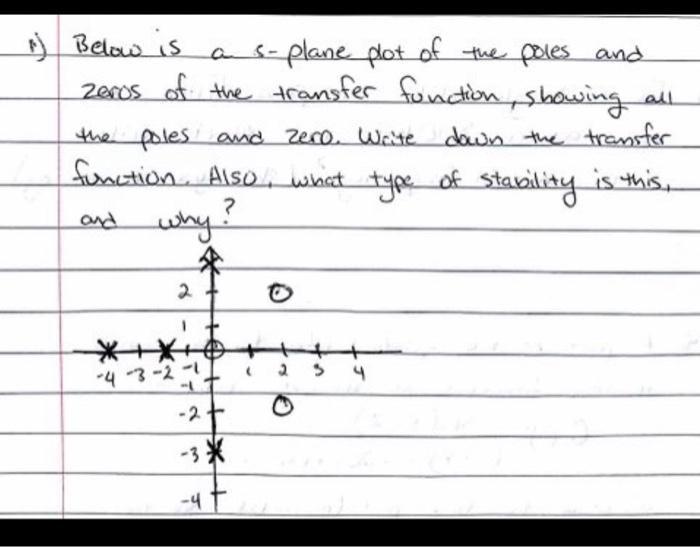 A) Below is a s-plane plot of the poles and
zeros of the transfer function, showing all
the poles and zero. Write down the transfer
function. Also, what type of stability is this,
and why?
2
1
-4 -3 -2 -1 1 2 3 4
-1
-2
-3
-4